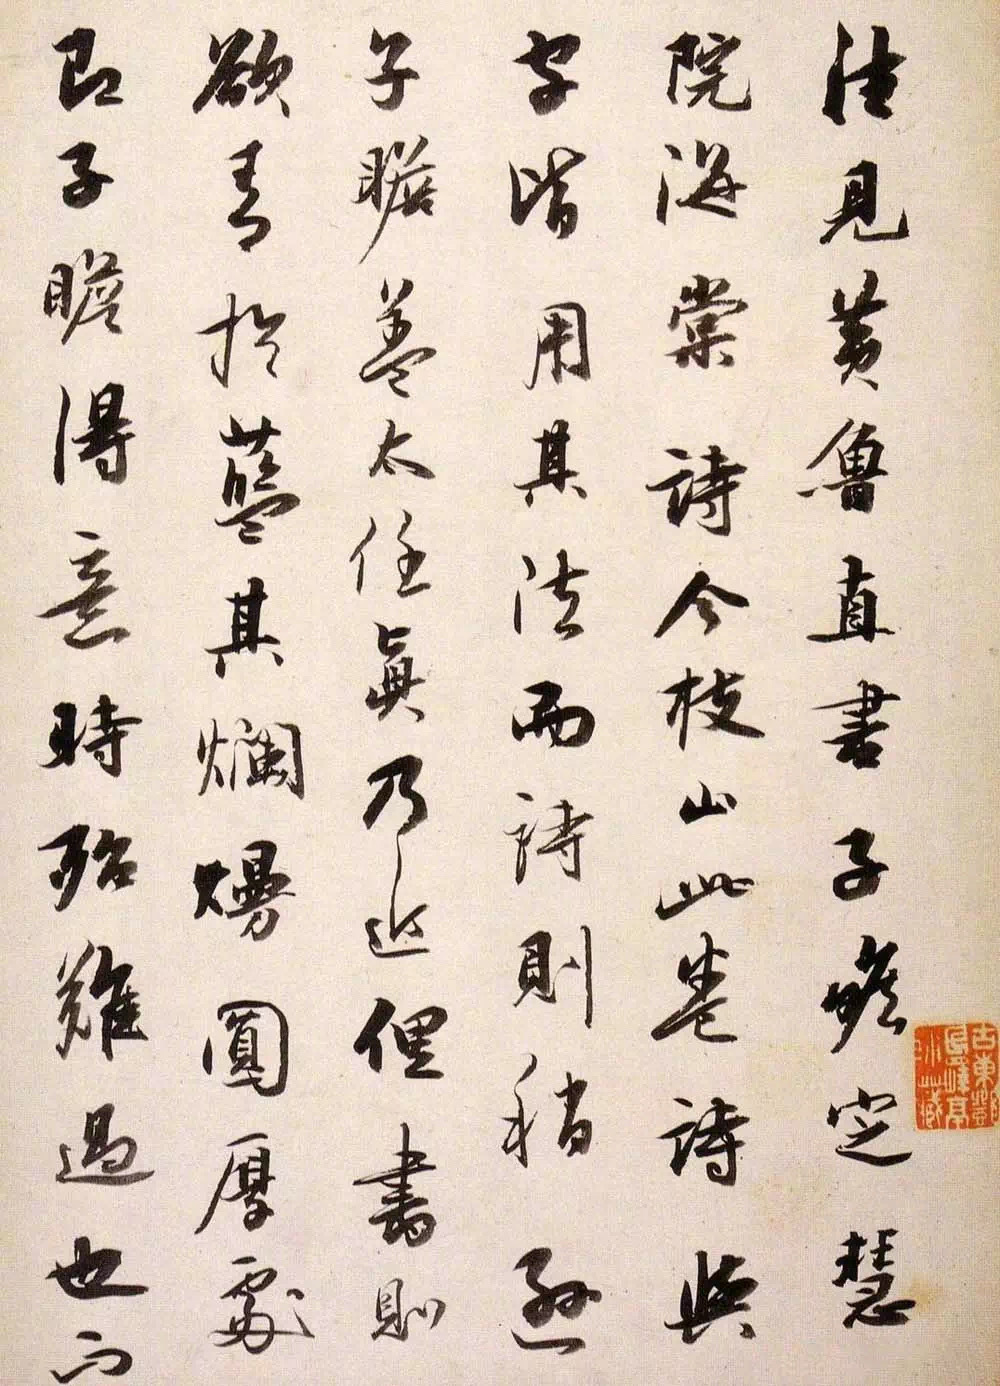 往見黃魯直書子瞻定慧
院海棠詩今枝山此卷詩與
字皆用其法而詩則稍遜
子瞻蓋太任真乃近俚書則
欲青於藍其爛熳圓厚處
即子瞻得意時殆難過也而